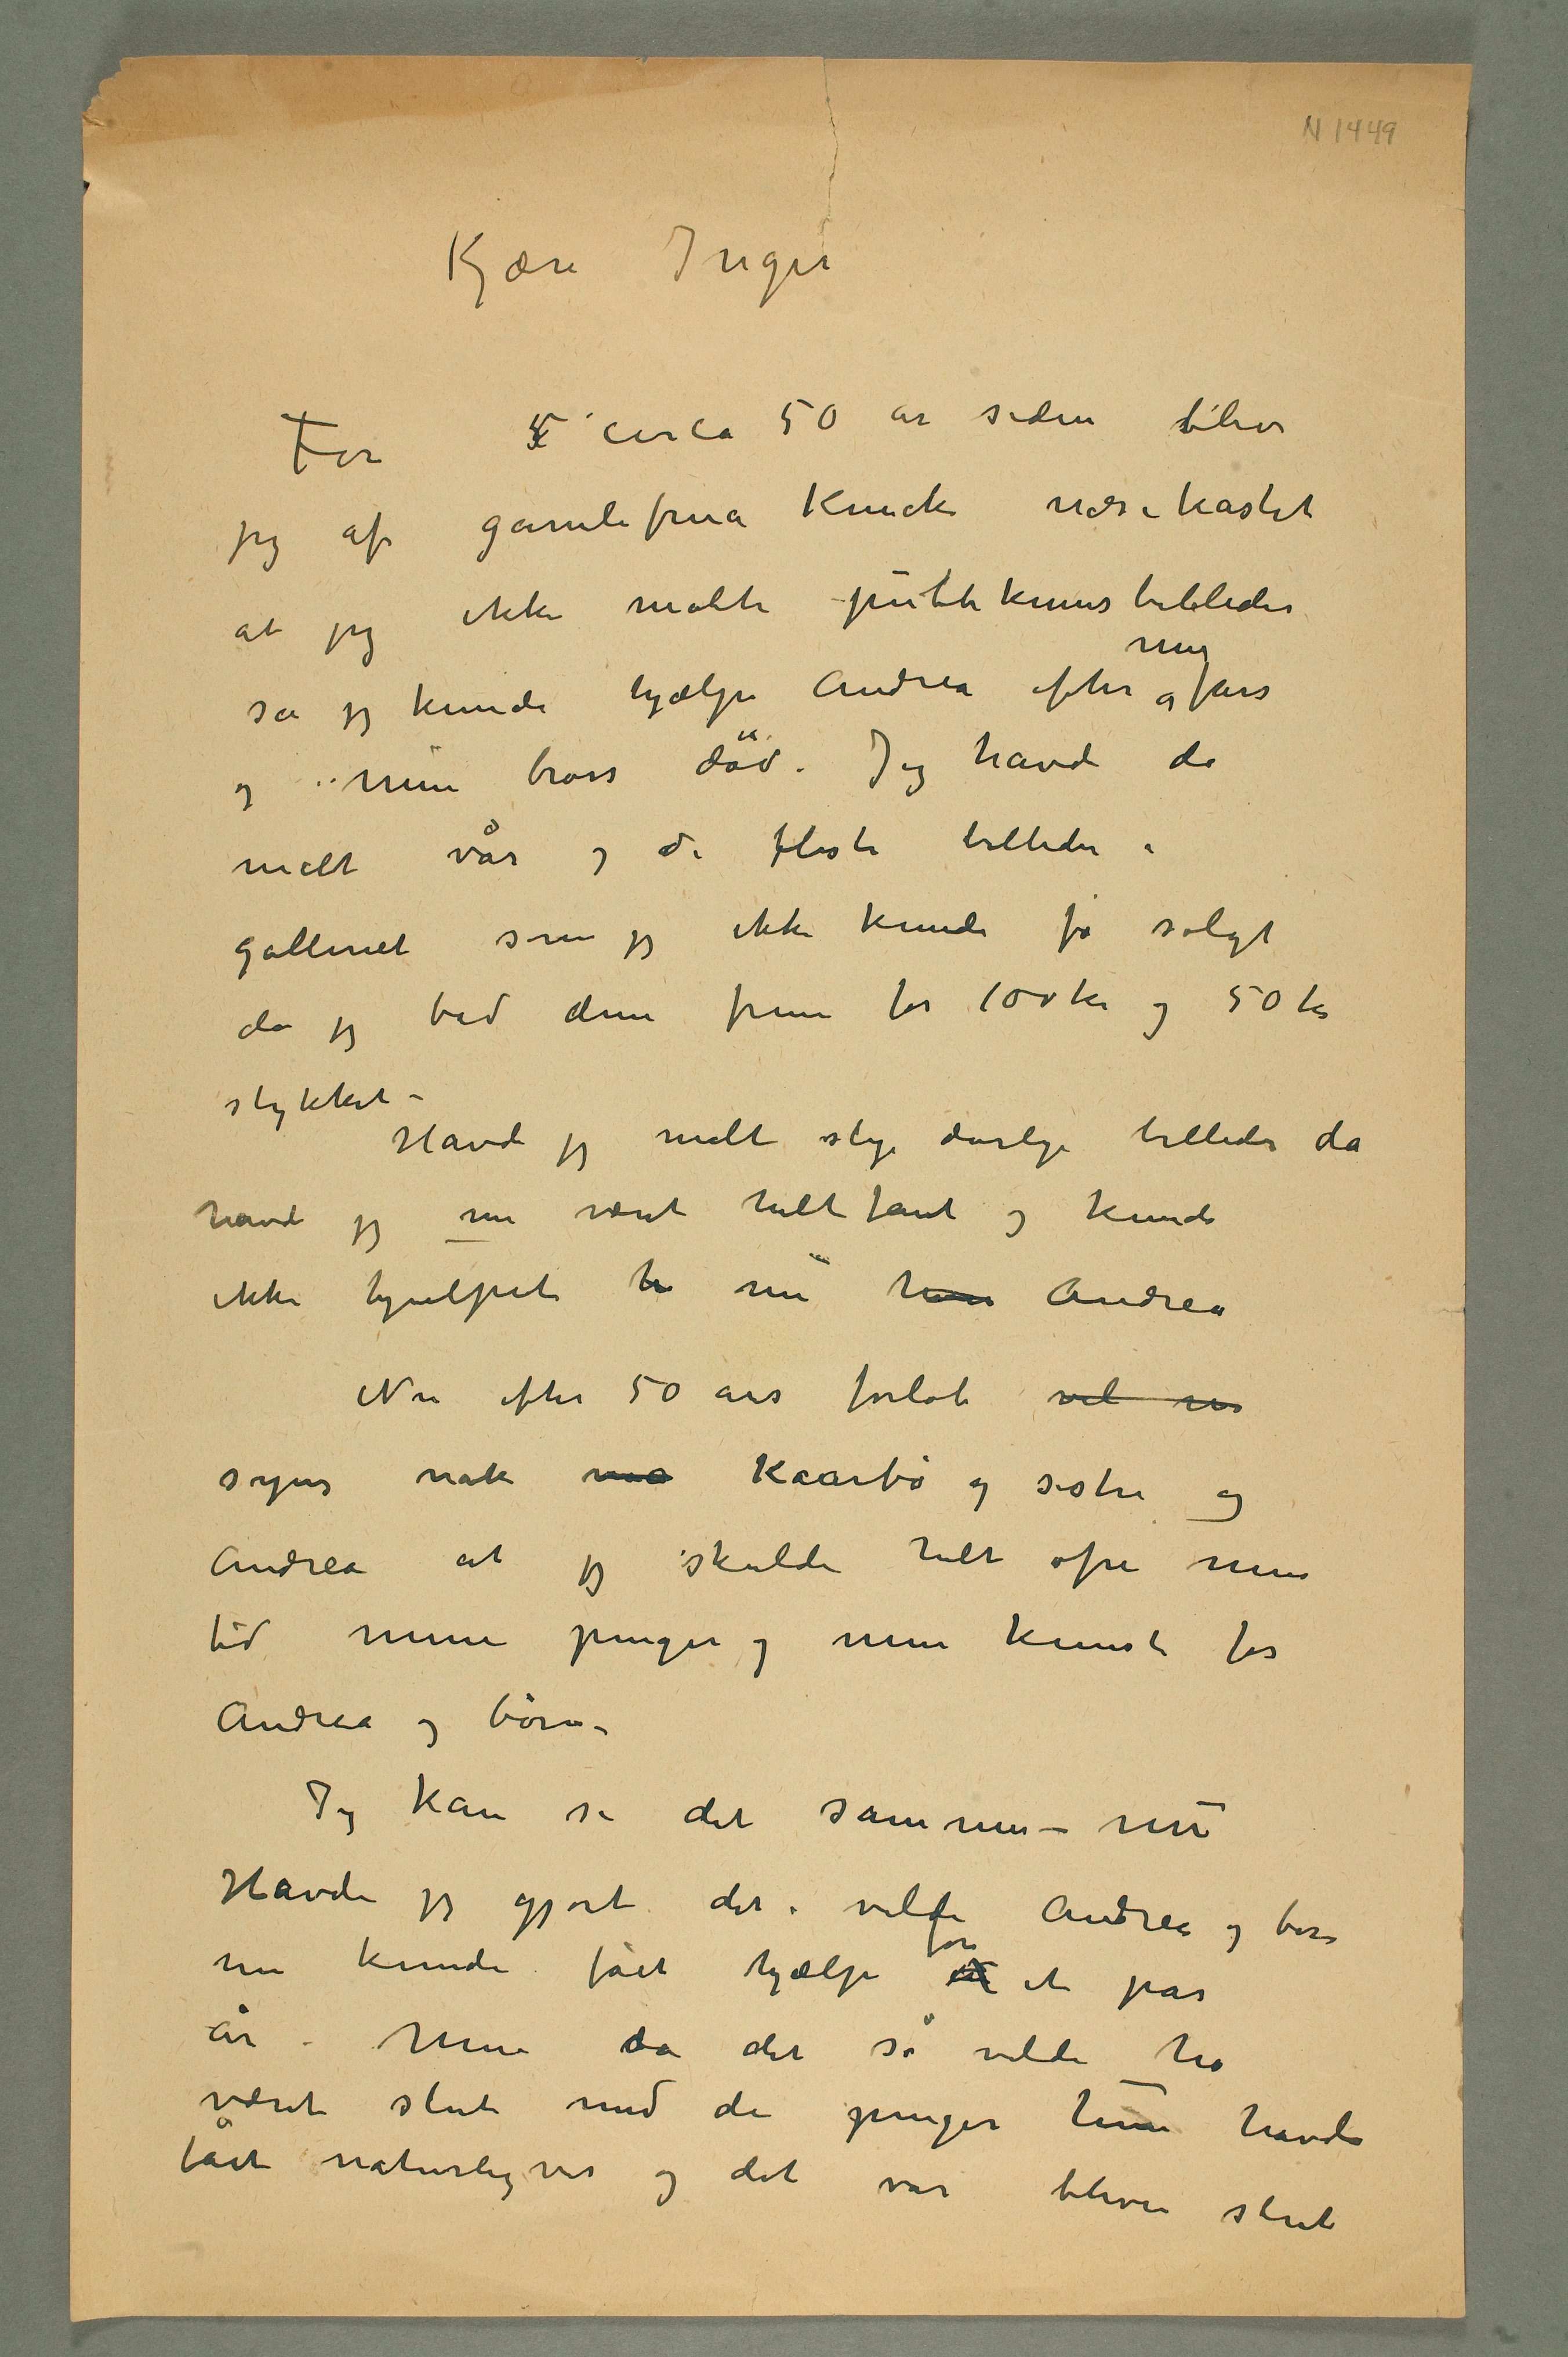 N 1449
Kjære Inger
For 5 circa 50 år siden blev
jeg af gamlefrua Kincke næsekastet
at jeg ikke malte publikumsbilleder
så jeg kunde hjælpe Andrea efter og fars
mig
og min brors død. Jeg havde da
malt vår og de fleste billeder i
galleriet som jeg ikke kunde få solgt
da jeg bød dem frem for 100 kr og 50 kr
stykket –
Havde jeg malt slige dårlige billeder da
havde jeg nu været helt fant og kunde
ikke hjulpet h nu hun Andrea
Nu efter 50 års forløb vil
synes nok Kaarbø og søstre og
Andrea at jeg skulde helt ofre min
tid mine penger og min kunst for
Andrea og børn –
Jeg kan si det samme – nu
Havde jeg gjort det vilde Andrea og børn
for
nu kunde fået hjælp et par
år – Men da det så vilde ha
været slut med de penger hun havde
fået naturligvis og det var bleven slut